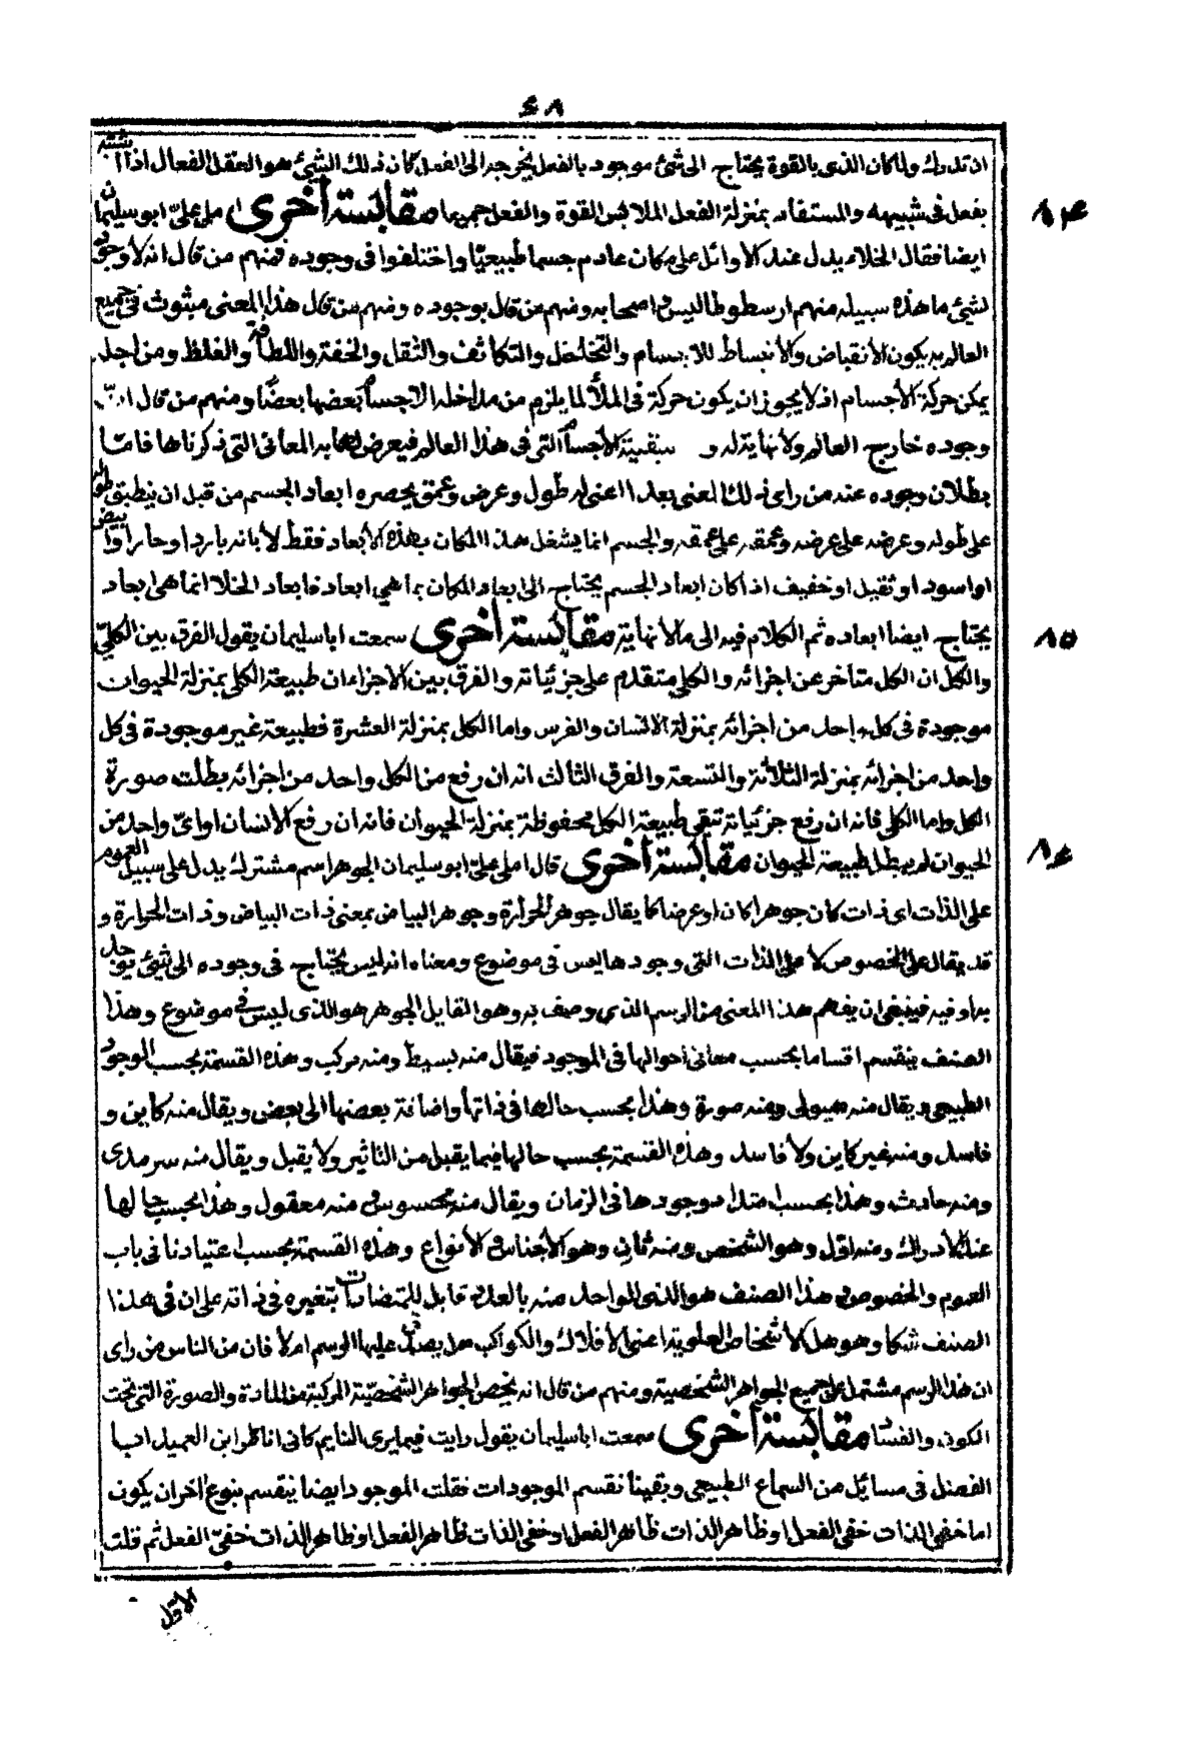 ٤٨
ان تدرك ولما كان الذى بالقوة يحتاج الى شئ موجود بالفعل يخرجه الى الفعل كان ذلك الشئ هو العقل الفعال اذا
يفعل فى شبيهه والمستفاد بمنزلة الفعل الملابس القوة والفعل جميعا مقابسة أخرى املى علىّ ابو سليمان
٨٤
ايضا فقال الخلاء يدل عند الاوائل على مكان عادم جسما طبيعيّا واختلفوا فى وجوده فمنهم من قال انه لا وجود
لشئ ما هذه سبيله منهم ارسطوطاليس واصحابه ومنهم من قال بوجوده ومنهم من قال هذا المعنى مبثوث فى جميع
العالم به يكون الأنقباض والأنبساط للاجسام والتخلخل والتكاثف والثقل والخفة واللطافة والغلظ ومن اجله
يمكن حركة الأجسام اذ لا يجوز ان يكون حركة فى الملأ لما يلزم من مداخله الاجسام بعضها بعضًا ومنهم من قال انّ
وجوده خارج العالم ولا نهاية له و الأجسام التى فى هذا العالم فيعرض لها به المعانى التى ذكرناها فامّا
بطلان وجوده عند من راى ذلك لعنى بعدا اعنى له طول وعرض وعمق يحصره ابعاد الجسم من قبل ان ينطبق طوله
على طوله وعرضه على عرضه وعمقه على عمقه والجسم انما يشغل هذا المكان بهذه الأبعاد فقط لأ بانه بارد او حار او ابيض
او اسود او ثقيل او خفيف اذا كان ابعاد الجسم يحتاج الى ابعاد المكان بما هى ابعاد فابعاد الخلا انما هى ابعاد
يحتاج ايضا ابعاده ثم الكلام فيه الى ما لانهاية مقابسة أخرى سمعت ابا سليمان يقول الفرق بين الكلىّ
٨٥
والكل ان الكل متأخر عن اجزائه والكلى متقدم على جزئياته والفرق بين الاجزاء ان طبيعة الكلى بمنزلة الحيوان
موجودة فى كل واحد من اجزائه بمنزلة الانسان والفرس واما الكل بمنزلة العشرة فطبيعة غير موجودة فى كل
واحد من اجزائه بمنزلة الثلاثة والتسعة والفرق الثالث انه ان رفع من الكل واحد من اجزائه بطلت صورة
الكل واما الكلى فانه ان رفع جزئياته تبقى طبيعة الكل محفوظة بمنزلة الحيوان فانه ان رفع الأنسان او اىّ واحد من
الحيوان لم يبطل طبيعة الحيوان مقابسة أخرى قال املى علىّ ابو سليمان الجوهر اسم مشترك يدل على سبيل العموم
٨٤
على الذات اى ذات كان جوهرا كان او عرضا كما يقال جوهر الحرارة وجوهر البياض بمعنى ذات البياض وذات الحرارة و
قد يقال على الخصوص كا على الذات التى وجودها ليس فى موضوع ومعناه انه ليس يحتاج فى وجوده الى شئ يوجد
به او فيه فينبغى ان يفهم هذا المعنى من الرسم الذى وصف به وهو القايل الجوهر هو الذى ليس فى موضوع وهذا
الصنف ينقسم اقساما بحسب معانى احوالها فى الموجود فيقال منه بسيط ومنه مركب وهذه القسمة بحسب الوجود
الطبيعى ويقال منه هيولى ومنه صورة وهذا بحسب حالها فى ذاتها واضافة بعضها الى بعض ويقال منه كاين و
فاسد ومنه غير كاين ولا فاسد وهذه القسمة بحسب حالها فيما يقبل من التاثير ولا يقبل ويقال منه سرمدى
ومنه حادث وهذا بحسب امتداد موجودها فى الزمان ويقال منه محسوس و منه معقول وهذا بحسب حالها
عند الأدراك ومنه اول وهو الشخص ومنه ثانى وهو الأجناس و الأنواع وهذه القسمة بحسب اعتيادنا فى باب
العموم والخصوص و هذا الصنف هو الذى الواحد منه بالعدد قابل للمتضادات بتغيره فى ذاته على ان فى هذا
الصنف شكا وهو هل الأشخاص العلوية اعنى الأفلاك والكواكب هل يصدق عليها الرسم ام لأ فان من الناس من راى
ان هذا الرسم مشتمل على جميع الجواهر الشخصية ومنهم من قال انه يخص الجواهر الشخصيّة المركبة من المادة والصورة التى تحت
الكون والفساد مقابسة أخرى سمعت ابا سليمان يقول رايت فيما يرى النايم كانى اناظر ابن العميد ابا
الفضل فى مسائل من السماع الطبيعى وبقينا نقسم الموجودات فقلت الموجود ايضا ينقسم بنوع اخر ان يكون
اما خفى الذات خفى الفعل او ظاهر الذات ظاهر الفعل او خفى الذات ظاهر الفعل او ظاهر الذات خفىّ الفعل ثم قلت
الأول